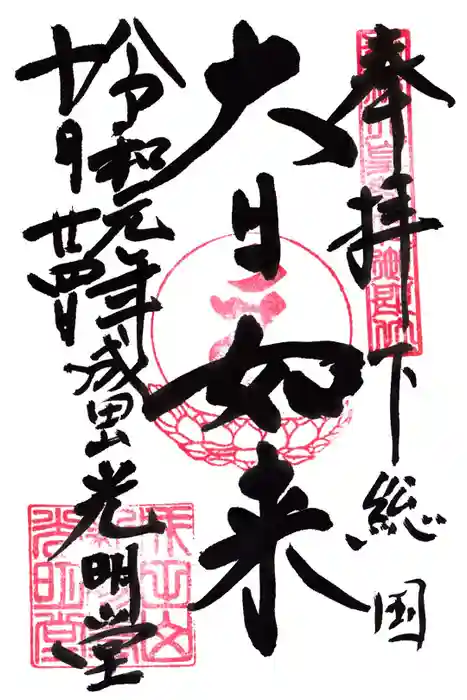 奉拝 下総国
大日如来
令和元年 成田山 光明堂
十月廿四日